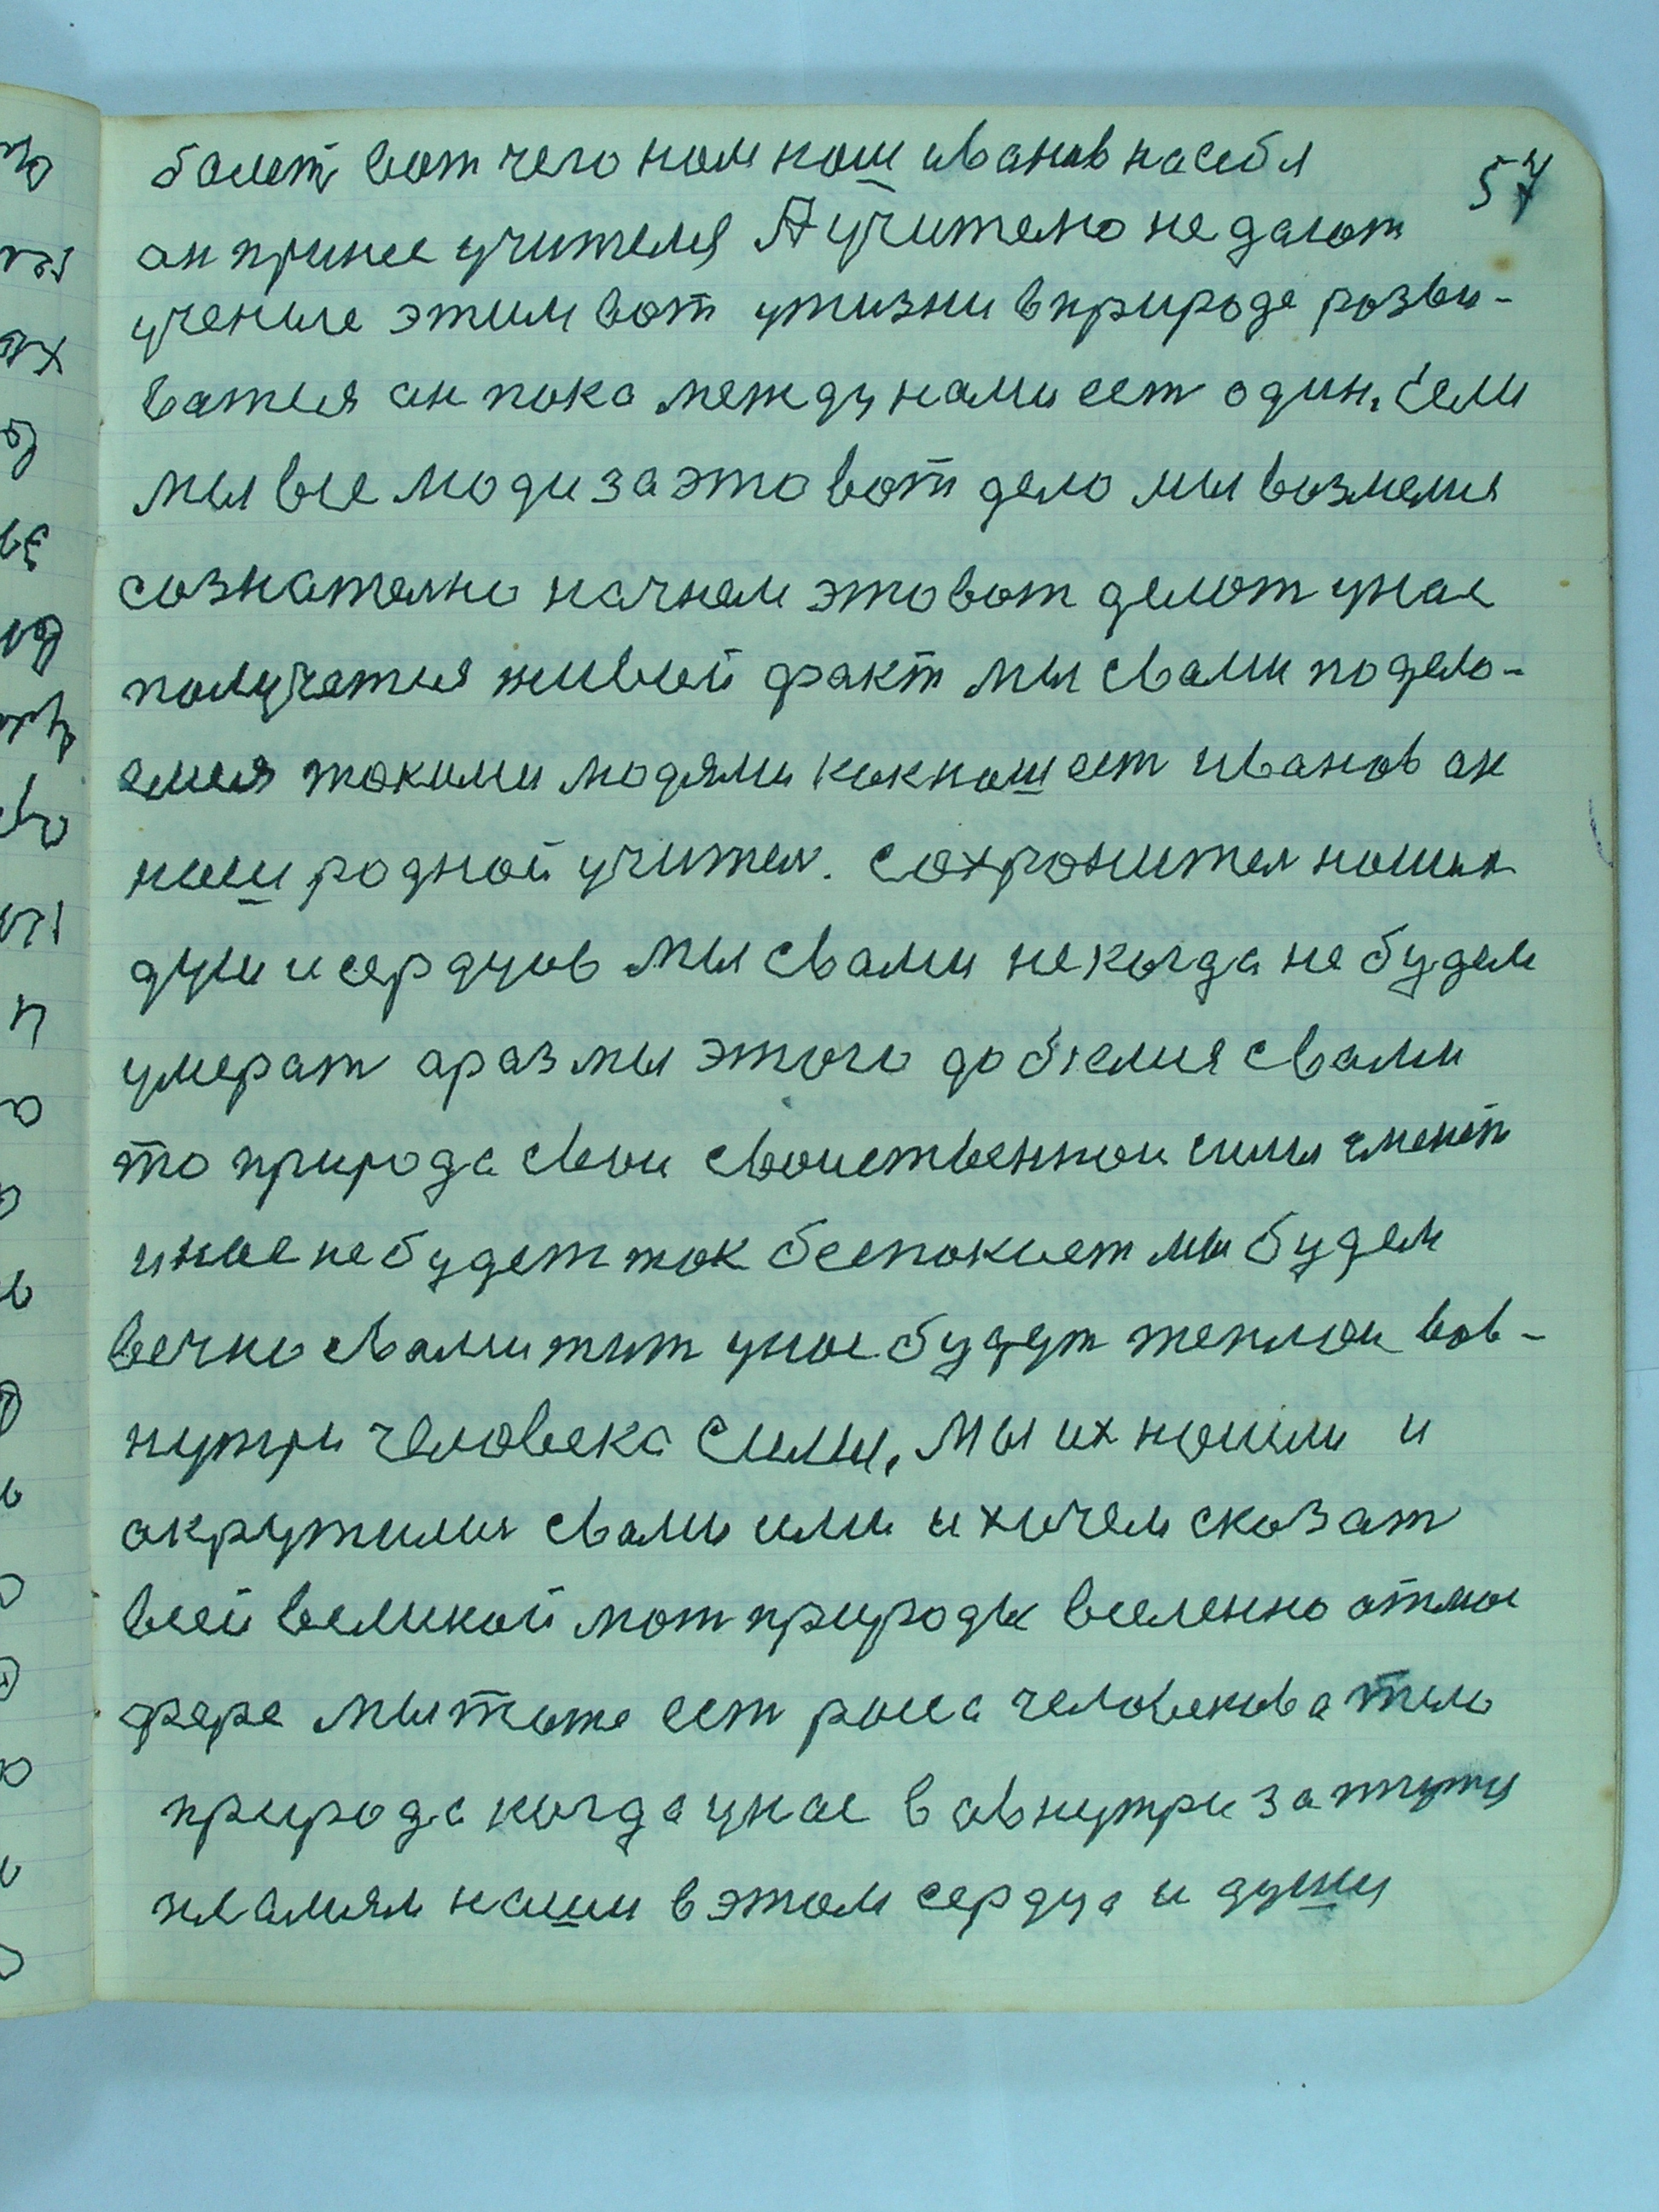 болет вот чего нам наш иванов насебя
57
ан принес учителя А учителю не дают
учение этим вот ужизни вприроде розви-
ватися ан пока между нами ест один, Если
мы все люди за это вот дело мы возмемся
сознателно начнем это вот делот унас
получится живой факт мы свами подело-
емся такими людями какнаш ест иванов ан
наш родной учител. сохронител наших
душ и сердцов мы свами некогда не будем
умерат араз мы этого добемся свами
то природа свои своиственнои силы сменит
инас не будет так беспокоет мы будем
вечно свами жит унас будут теплои вов-
нутри человека силы, мы их нашли и
акружилис свами ими и хочем сказат
всей великой мат природы вселенно отмос
фере мы тоже ест росса человекова тело
природа когда унас вовнутри зажгуця
пламям наши в этом сердца и душы